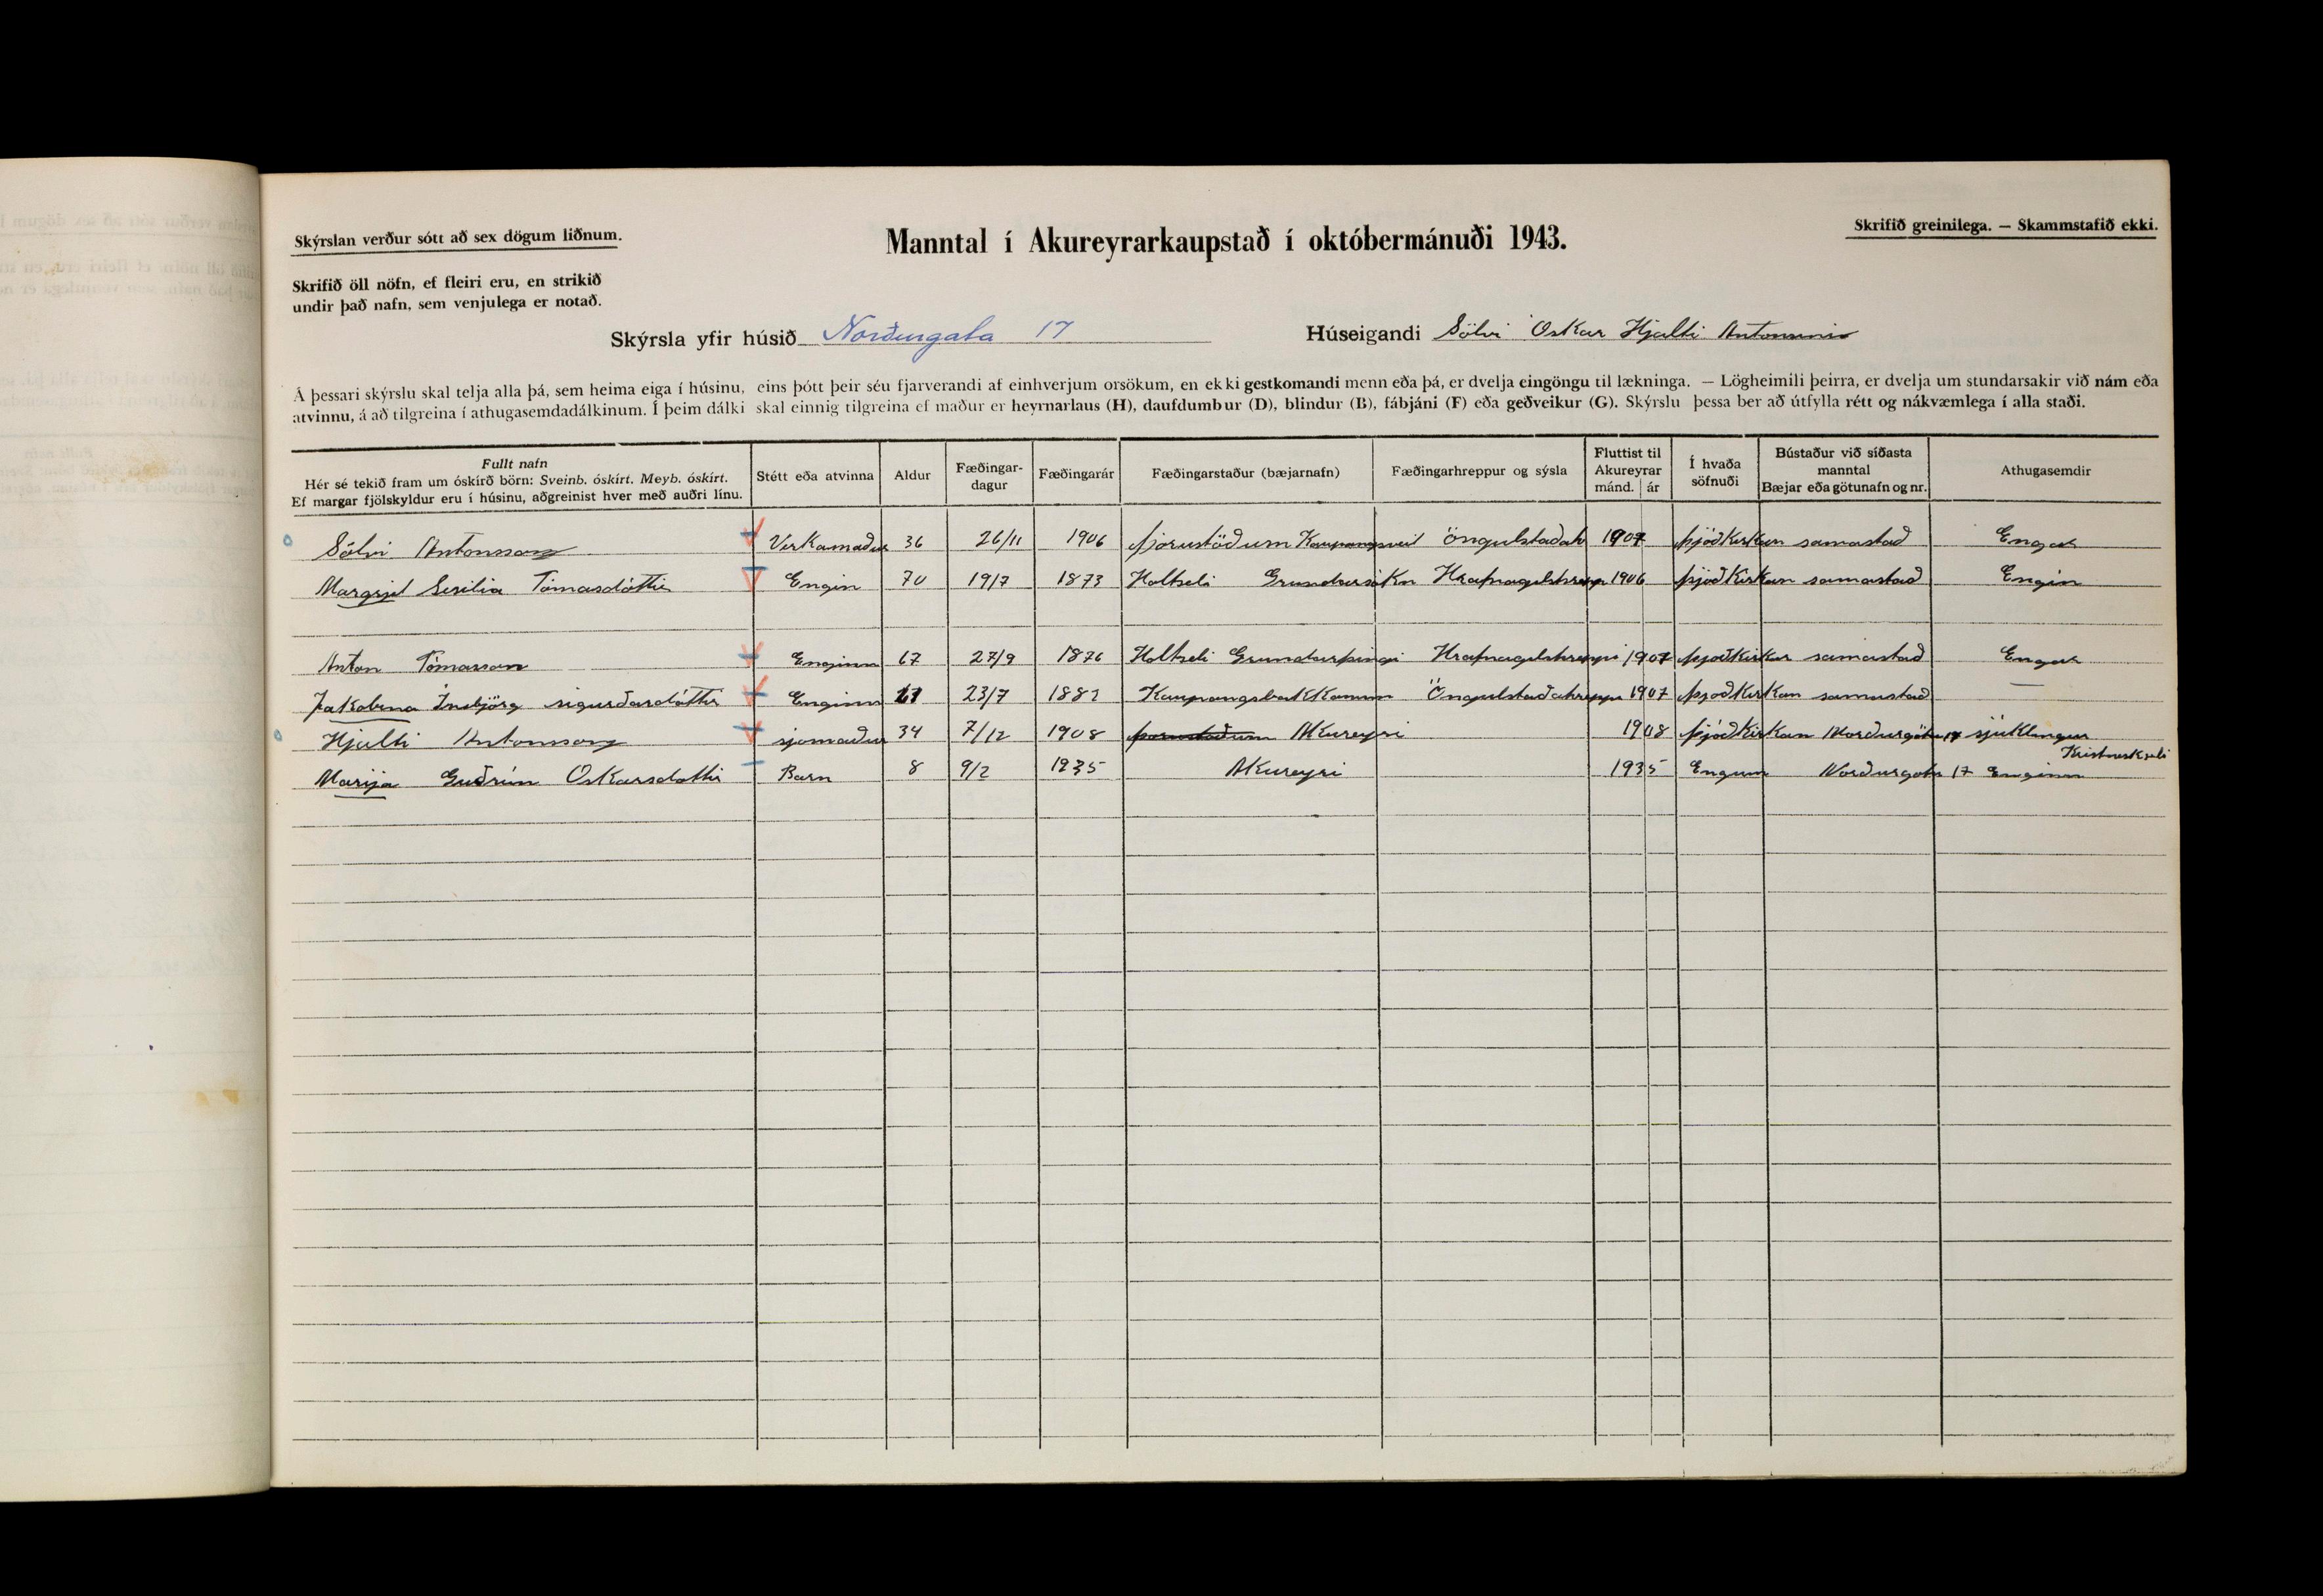 Skýrslan verður sótt að sex dögum liðnum.
Manntal í Akureyrarkaupstað í októbermánuði 1943.
Skrifið greinilega. — Skammstafið ekki.
Skrifið öll nöfn, ef fleiri eru, en strikið
undir það nafn, sem venjulega er notað.
Skýrsla yfir húsið Norðurgata 17
Húseigandi Sölvi Oskar Hjalti Antonssynir
Á þessari skýrslu skal telja alla þá, sem heima eiga í húsinu, eins þótt þeir séu fjarverandi af einhverjum orsökum, en ekki gestkomandi menn eða þá, er dvelja eingöngu til lækninga. — Lögheimili þeirra, er dvelja um stundarsakir við nám eða
atvinnu, á að tilgreina í athugasemdadálkinum. Í þeim dálki skal einnig tilgreina ef maður er heyrnarlaus (H), daufdumbur (D), blindur (B), fábjáni (F) eða geðveikur (G). Skýrslu þessa ber að útfylla rétt og nákvæmlega í alla staði.
Fullt nafn
Hér sé tekið fram um óskírð börn: Sveinb. óskírt. Meyb. óskírt.
Ef margar fjölskyldur eru í húsinu, aðgreinist hver með auðri línu.
Stétt eða atvinna
Aldur
Fæðingar-
dagur
Fæðingarár
Fæðingarstaður (bæjarnafn)
Fæðingarhreppur og sýsla
Fluttist til
Akureyrar
mánd. ár
Í hvaða
söfnuði
Bústaður við síðasta
manntal
Bæjar eða götunafn og nr.
Athugasemdir
Sölvi Antonsson Verkamaður 36 26/11 1906 Kaupangsveit Öngulstaðah 1907 þjóðkirkan samastað
Margrjet Sesilia Tómasdóttir Engin 70 19/7 1873 Holtseli Grundarsókn Hrafnagilshrepp 1906 þjóðkirkan samastað Engin
Anton Tómasson Enginn 67 27/9 1876 Holtseli Grundarþingi Hrafnagilshreppi 1907 þjóðkirkan samastað
Jakobina Insbjörg sigurðardóttir Enginn 61 23/7 1882 Kaupangsbakkanum Öngulstaðahreppi 1907 þjoðkirkan samastað —
Hjalti Antonsson sjomaður 34 7/12 1908 Akureyri 1908 þjóðkirkan Norðurgötu 17 sjúklingur
Marija Guðrún Oskarsdottir Barn 8 9/2 1935 Akureyri 1935 Engum Norðurgotu 17 Enginn